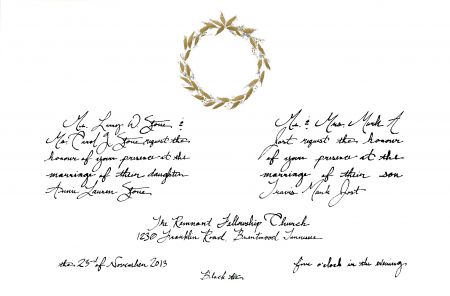 Mr. Leroy W Stone &
Ms. Carol J. Stone request the
honour of your presence at the
marriage of their daughter
Annie Lauren Stone
Mr. & Mrs. Mark A
Jost request the honour
of your presence at the
marriage of their son
Travis Mark Jost
The Remnant Fellowship Church
1230 Franklin Road, Brentwood Tennessee
the 23rd of November 2013
five o'clock in the evening
Black tie